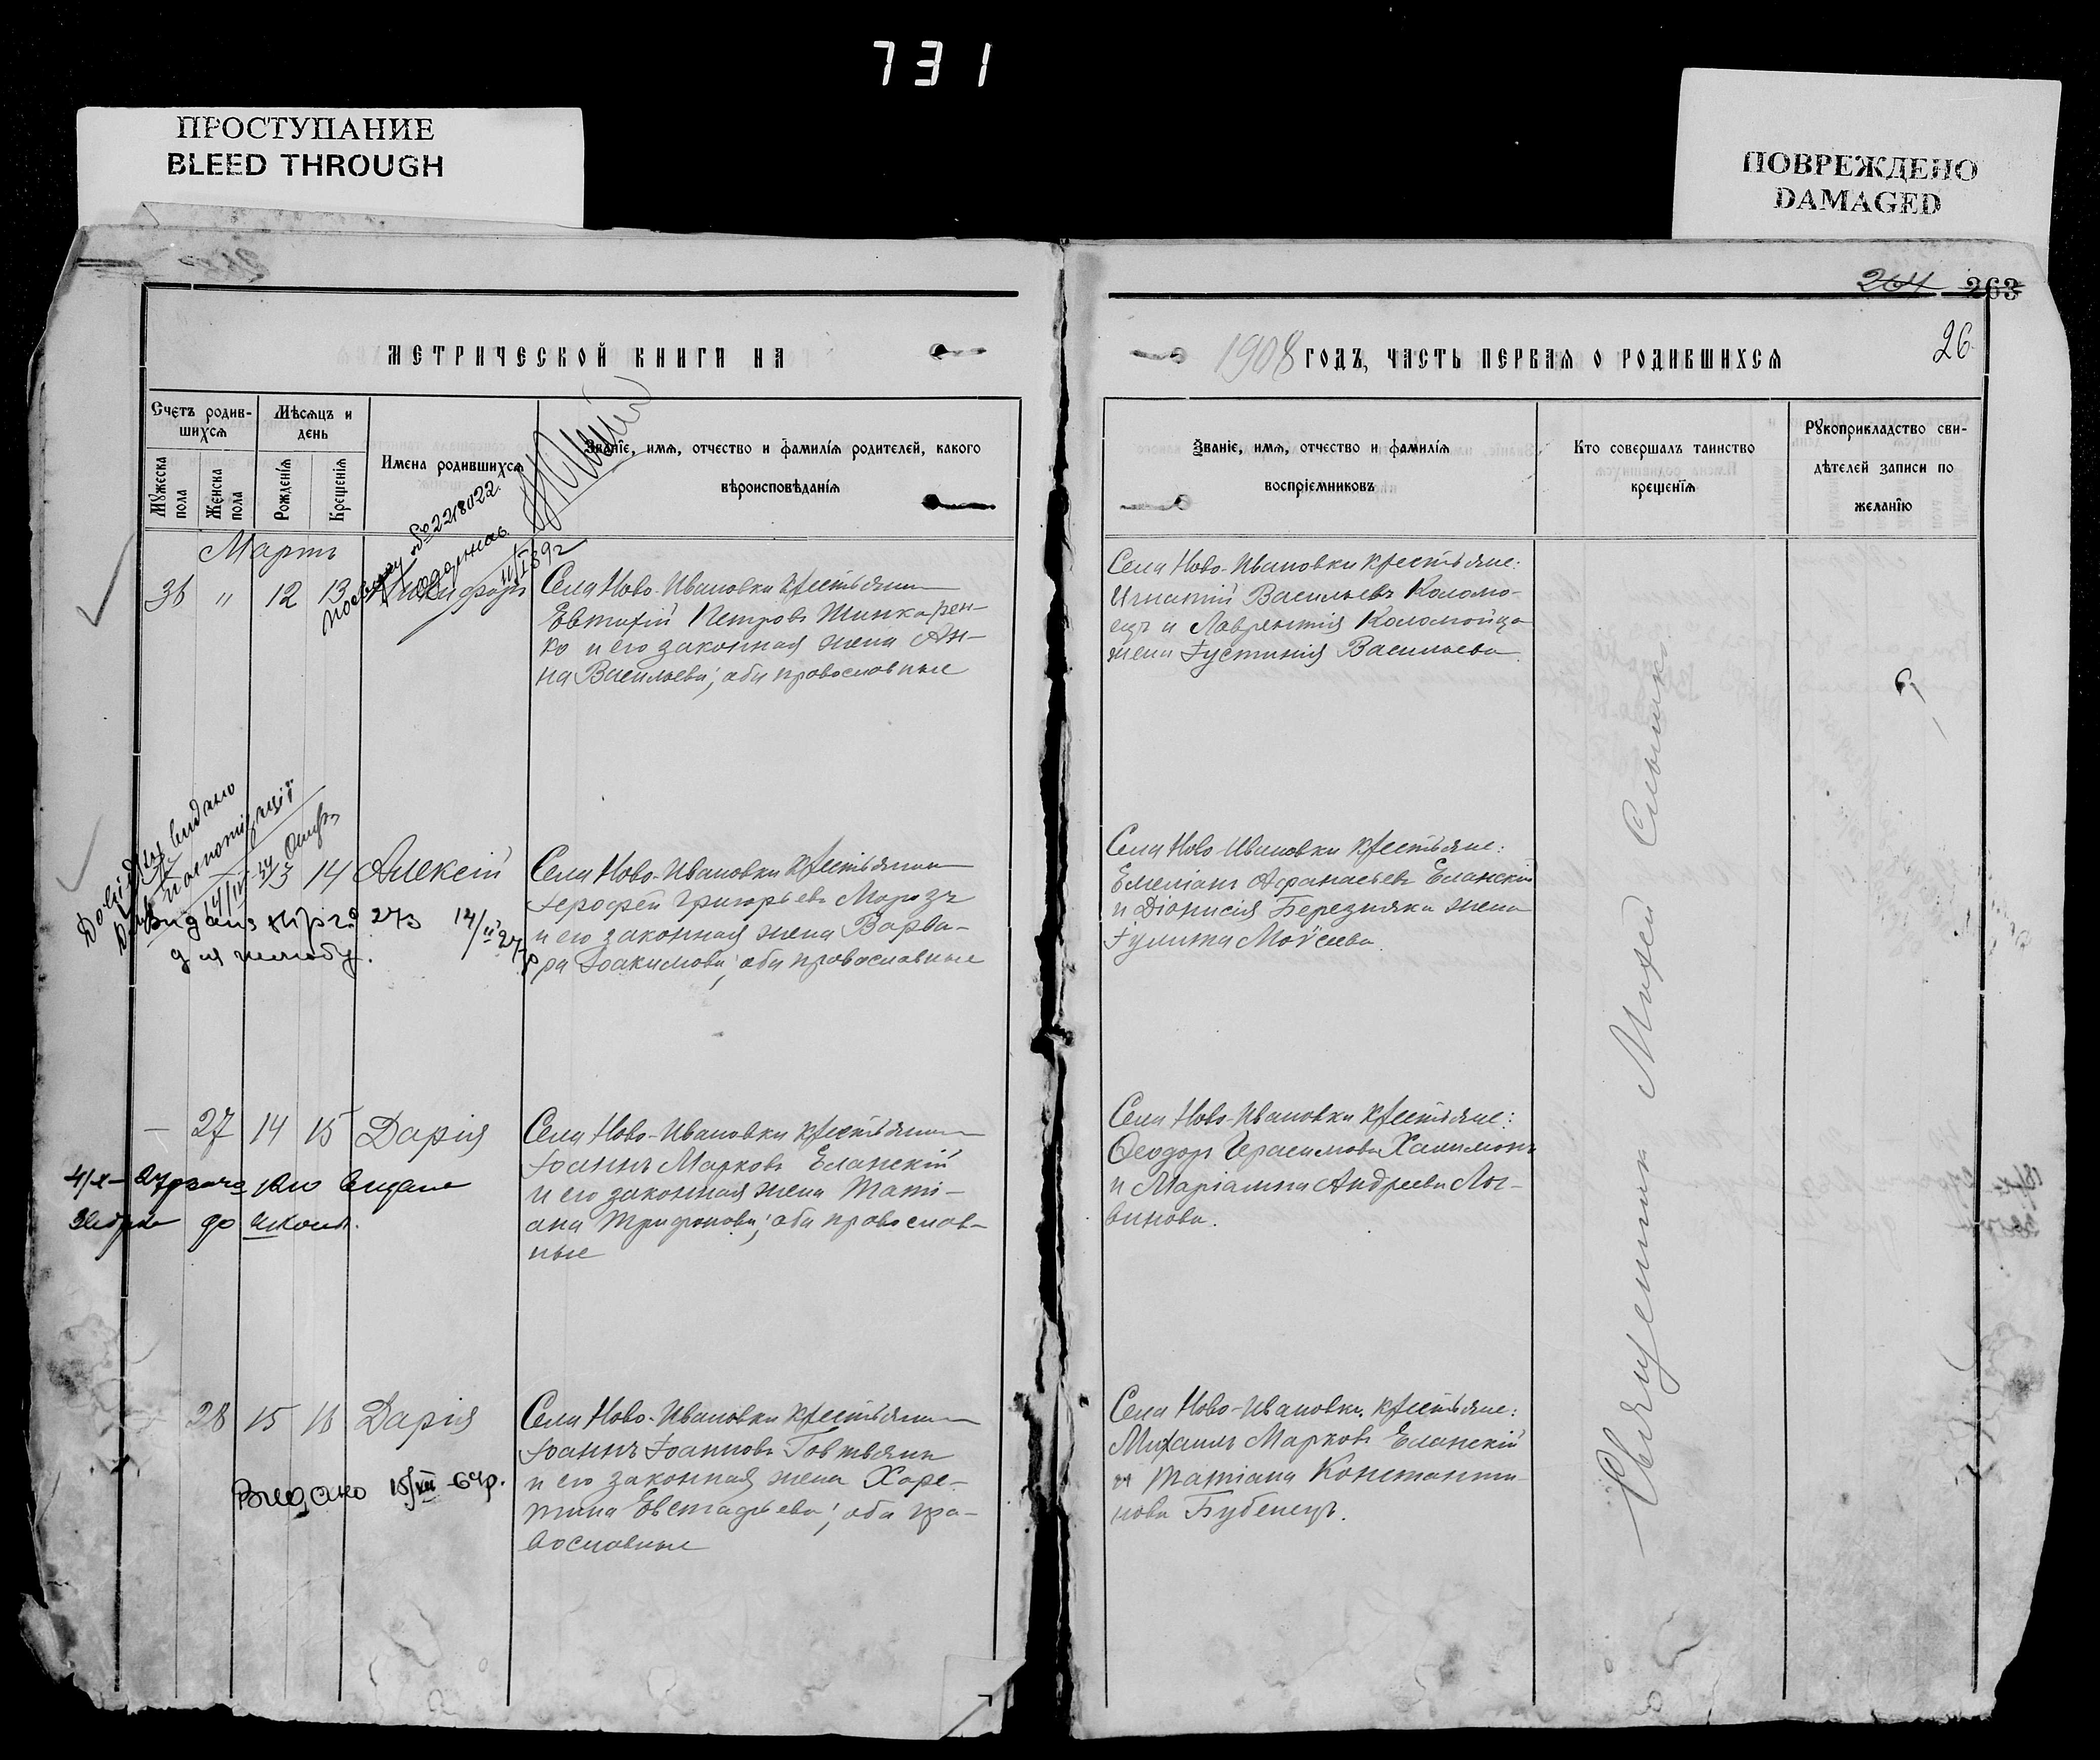 731
ПРОСТУПАНИЕ
BLEED THROUGH
ПОВРЕЖДЕНО
DAMAGED
264 263
26
МЕТРИЧЕСКОЙ КНИГИ НА
1908 ГОДЪ, ЧАСТЬ ПЕРВАЯ О РОДИВШИХСЯ
Счетъ родив-
шихся
Мѣсяцъ и
день
Мужеска пола
Женска пола
Рожденія
Крещенія
Имена родившихся
Званіе, имя, отчество и фамилія родителей, какого
вѣроисповѣданія
Званіе, имя, отчество и фамилія
воспріемниковъ
Кто совершалъ таинство
крещенія
Рукоприкладство сви-
дѣтелей записи по
желанію
Мартъ
12 13 Никифоръ
Села Ново-Ивановки крестьянинъ
Евтихій Петровъ Шинкарен-
ко и его законная жена Ан-
на Васильева; оба православные
Села Ново-Ивановки крестьяне:
Игнатій Васильевъ Коломо-
ецъ и Лаврентія Коломойца
жена Іустинія Васильева
14 Алексій
Села Ново-Ивановки крестьянинъ
Іерофей Григорьевъ Морозъ
и его законная жена Варва-
ра Іоакимова; оба православные
видано
273 14/II 27
для шлюбу.
Села Ново-Ивановки крестьяне:
Емеліанъ Афанасьевъ Еланскій
и Діонисія Березняка жена
Іулитта Моѵсеева.
— 27 14 15 Дарія
Села Ново-Ивановки крестьянинъ
Іоаннъ Марковъ Еланскій
и его законная жена Тати-
ана Трифонова; оба православ-
ные
видана
до школи.
Села Ново-Ивановки крестьяне:
Ѳеодоръ Герасимовъ Халимонъ
и Маріамна Андреева Лог-
винова.
28 15 16 Дарія
Села Ново-Ивановки крестьянинъ
Іоаннъ Іоанновъ Говтвянъ
и его законная жена Хари-
тина Евстафьева; оба пра-
вославные
Видано 18/VII 64р.
Села Ново-Ивановки крестьяне:
Михаилъ Марковъ Еланскій
и Татіана Константи-
нова Бубенецъ.
Священникъ Михей